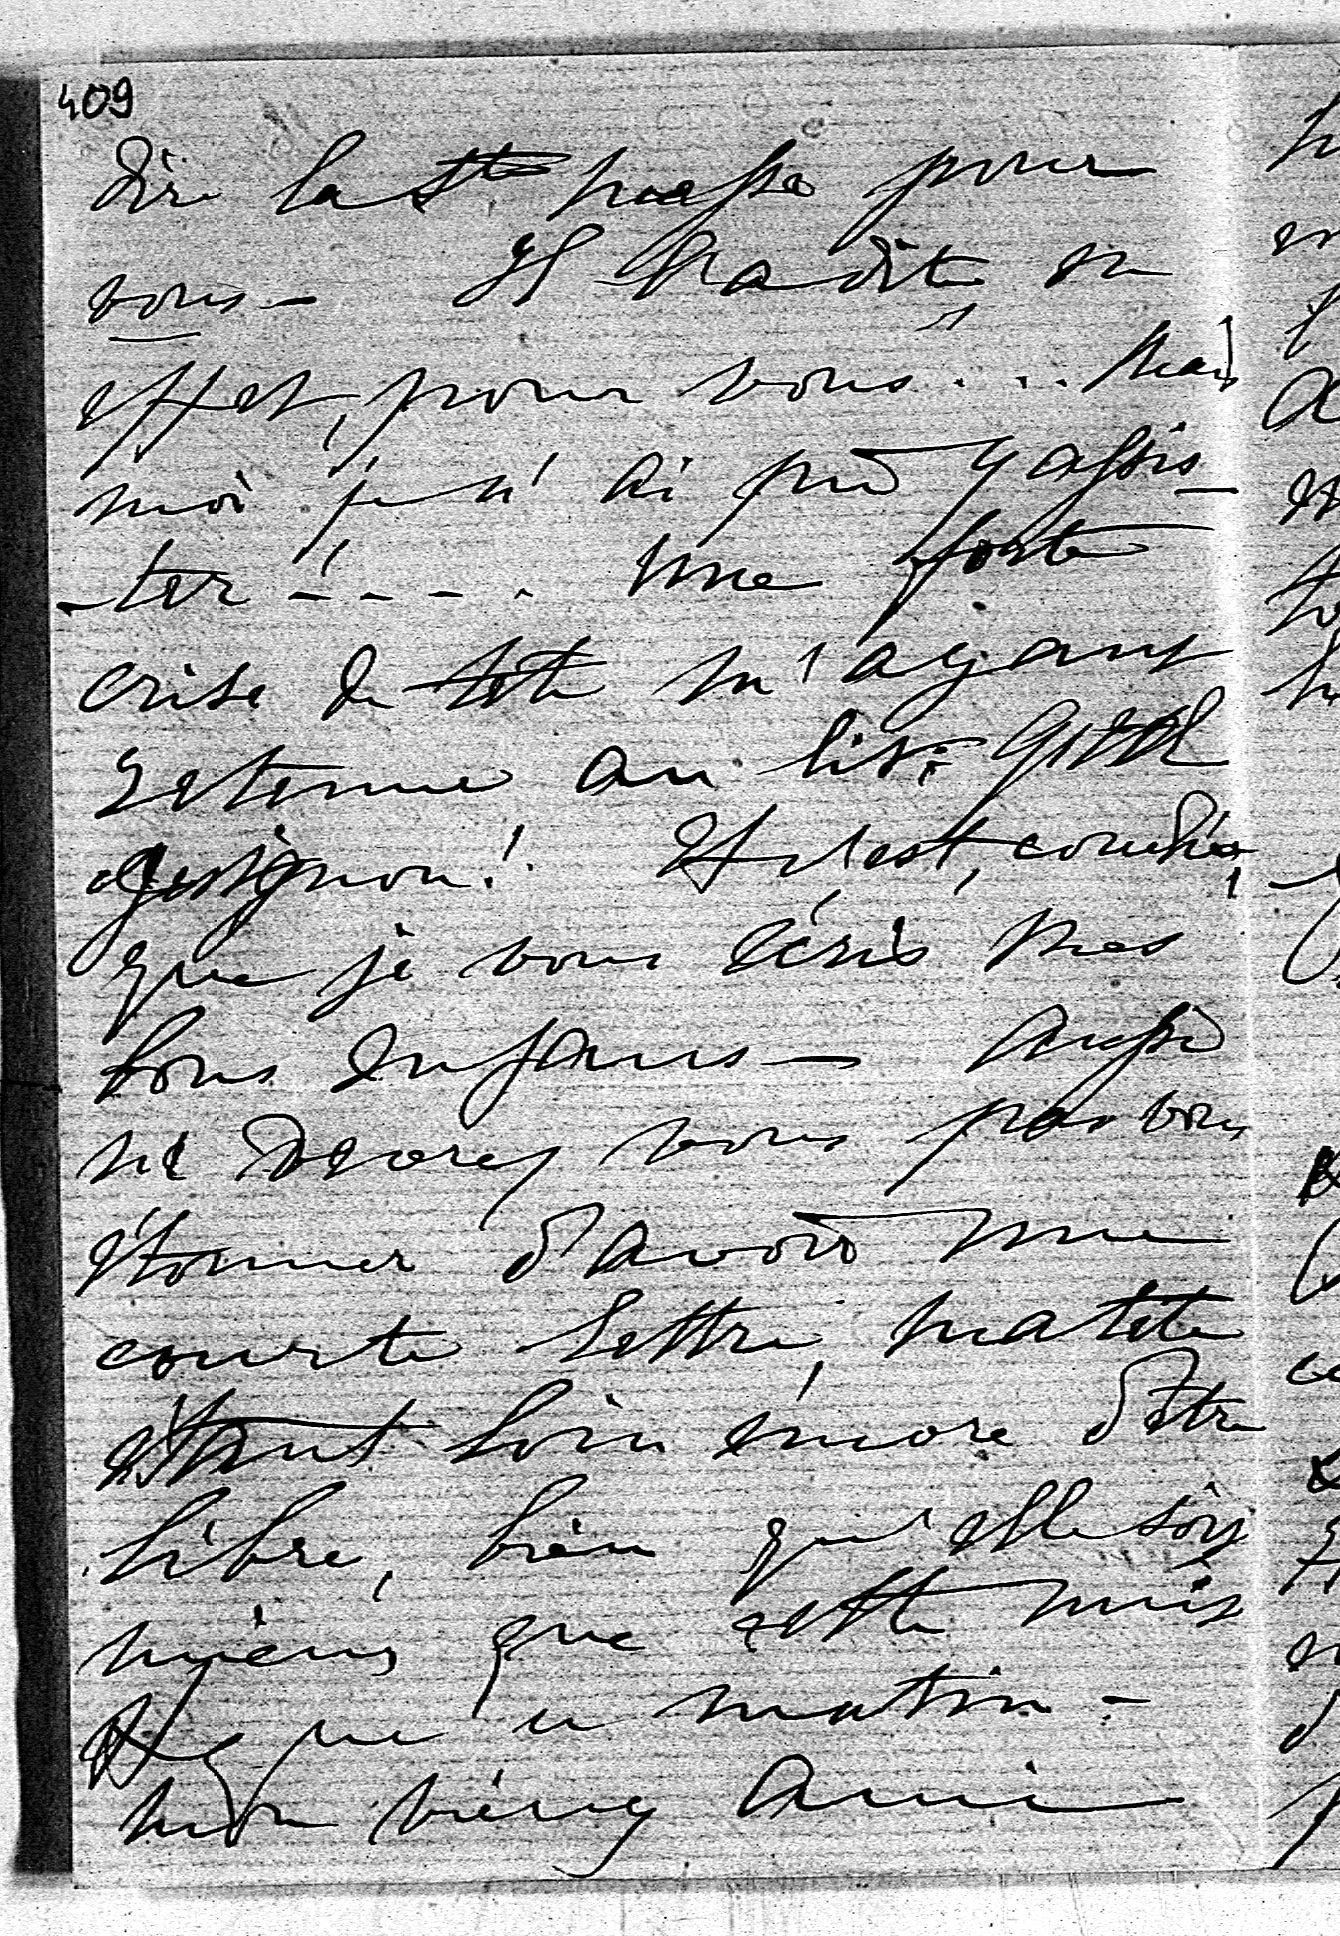 409
dire la Ste messe pour
vous – Il l'a dite en
effet, pour vous... Mais
moi je n'ai pu y assis-
-ter - - - - . Une forte
crise de tête m'ayant
retenue au lit. Quel
guignon! Et c'est, couchée,
que je vous écris mes
bons enfans – Aussi
ne devrez vous pas vous
étonner d'avoir une
courte lettre, ma tête
étant loin encore d'être
libre, bien qu'elle soit
mieux que cette nuit
et que ce matin –
Mon vieux ami